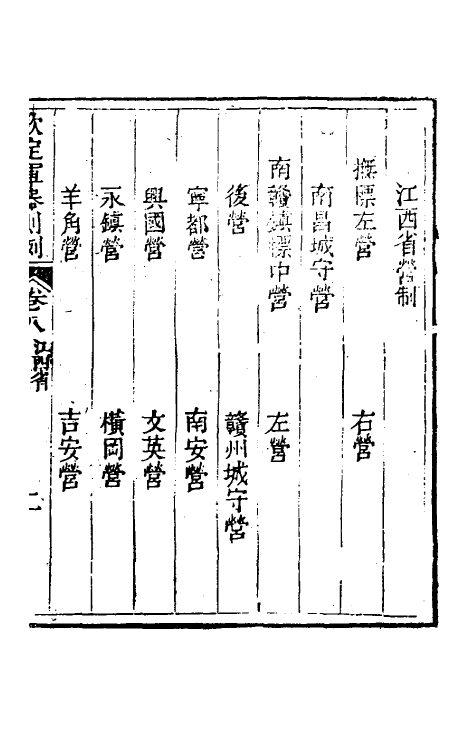 江西省營制
撫標左營　右營
南昌城守營
南贛鎮標中營　左營
後營　贛州城守營
寧都營　南安營
興國營　文英營
永鎮營　橫岡營
羊角營　吉安營
欽定軍器則例　卷八　江西省　二